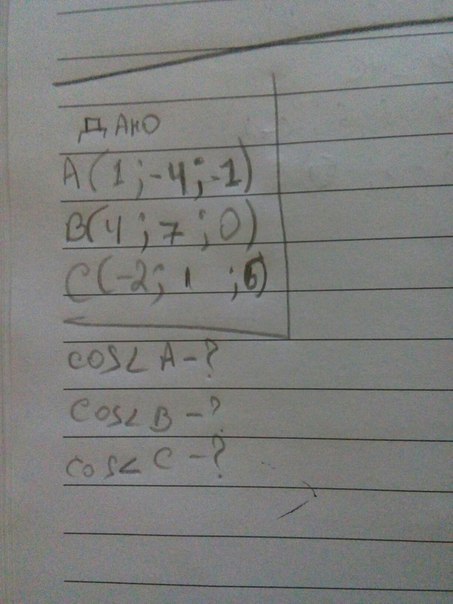 Дано
A(1;-4;-1)
B(4;7;0)
C(-2;1;6)
cos∠A-?
cos∠B-?
cos∠C-?